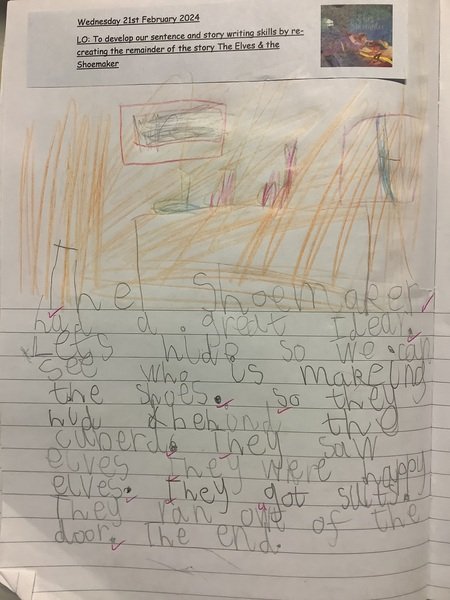 Wednesday 21st February 2024
LO: To develop our sentence and story writing skills by re-
creating the remainder of the story The Elves & the
Shoemaker
The Shoemaker
had a great Idear.
Lets hide so we can
see who is makeing
the shoes. So they
hid behond the
cuberd. They saw
elves They were happy
elves. They got suits.
They ran out of the
door. The end.